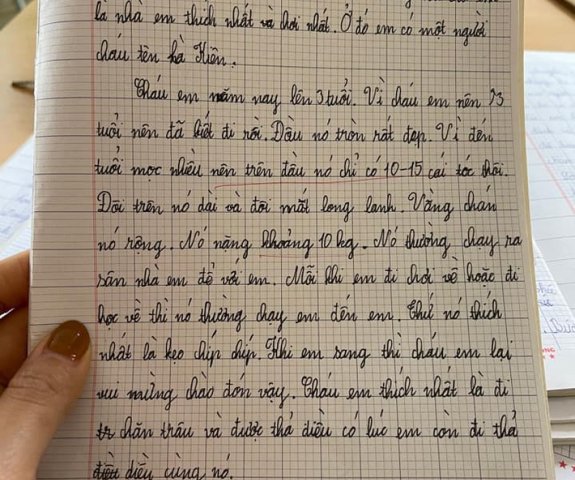 là nhà em thích nhất và chơi nhất. Ở đó em có một người
cháu tên hà Kiên.
Cháu em năm nay lên 3 tuổi. Vì cháu em nên 3
tuổi nên đã biết đi rồi. Đầu nó tròn rất đẹp. Vì đến
tuổi mọc nhiều nên trên đầu nó chỉ có 10-15 cái tóc thôi.
Đôi trên nó dài và đôi mắt long lanh. Vầng chán
nó rộng. Nó nặng khoảng 10 kg. Nó thường chạy ra
sân nhà em để với em. Mỗi khi em đi chơi về hoặc đi
học về thì nó thường chạy em đến em. Thứ nó thích
nhất là kẹo chíp chíp. Khi em sang thì cháu em lại
vui mừng chào đón vậy. Cháu em thích nhất là đi
chăn trâu và được thả diều có lúc em còn đi thả
diều cùng nó.